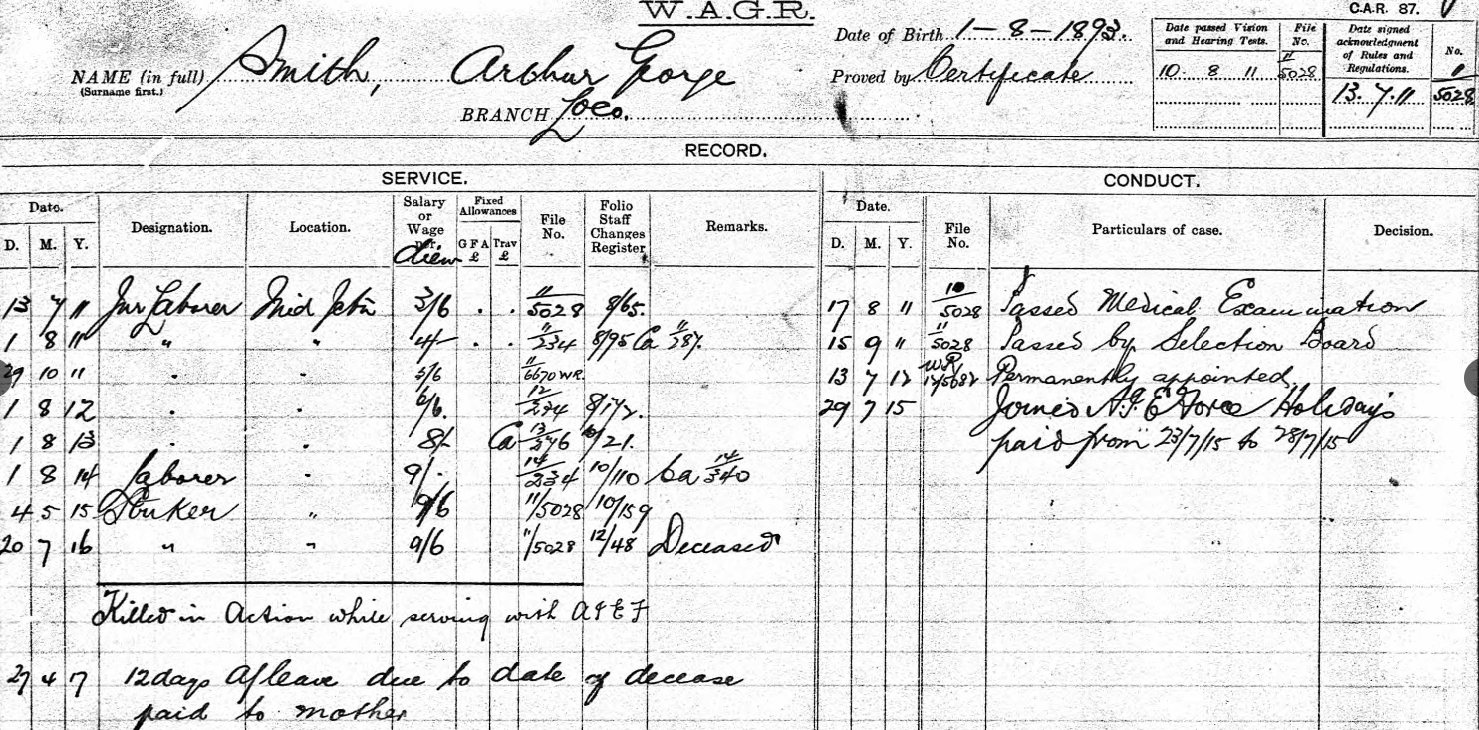 W.A.G.R.
C.A.R. 87.
NAME (in full) Smith, Arthur George
(Surname first.)
BRANCH Loco.
Date of Birth 1-8-1893.
Proved by Certificate
Date passed Vision and Hearing Tests. File No.
10 8 11 11/5028
Date signed acknowledgment of Rules and Regulations. No.
13.7.11 11/5028
RECORD.
SERVICE.
Date. Designation. Location. Salary or Wage per diem Fixed Allowances File No. Folio Staff Changes Register Remarks.
D. M. Y. G F A £ Trav £
13 7 11 Jnr Laborer Mid Jctn 3/6 . . 11/5028 8/65.
1 8 11 " " 4/- . . 11/234 8/95 Ca 11/287.
29 10 11 . . 5/6 11/6670 WR.
1 8 12 . . 6/6. 12/274 8/172.
1 8 13 . . 8/- Ca 13/276 10/21.
1 8 14 Laborer . 9/- 14/234 10/110 Ca 14/340
4 5 15 Striker " 9/6 11/5028 10/159
20 7 16 " " 9/6 11/5028 12/48 Deceased
Killed in Action while serving with A I E F
27 4 7 12 days A/leave due to date of decease
paid to mother
CONDUCT.
Date. File No. Particulars of case. Decision.
D. M. Y.
17 8 " 10/5028 Passed Medical Examination
15 9 " 11/5028 Passed by Selection Board
13 7 12 WR Permanently appointed,
29 7 15 Joined A.I.E. Force Holidays
paid from 23/7/15 to 28/7/15